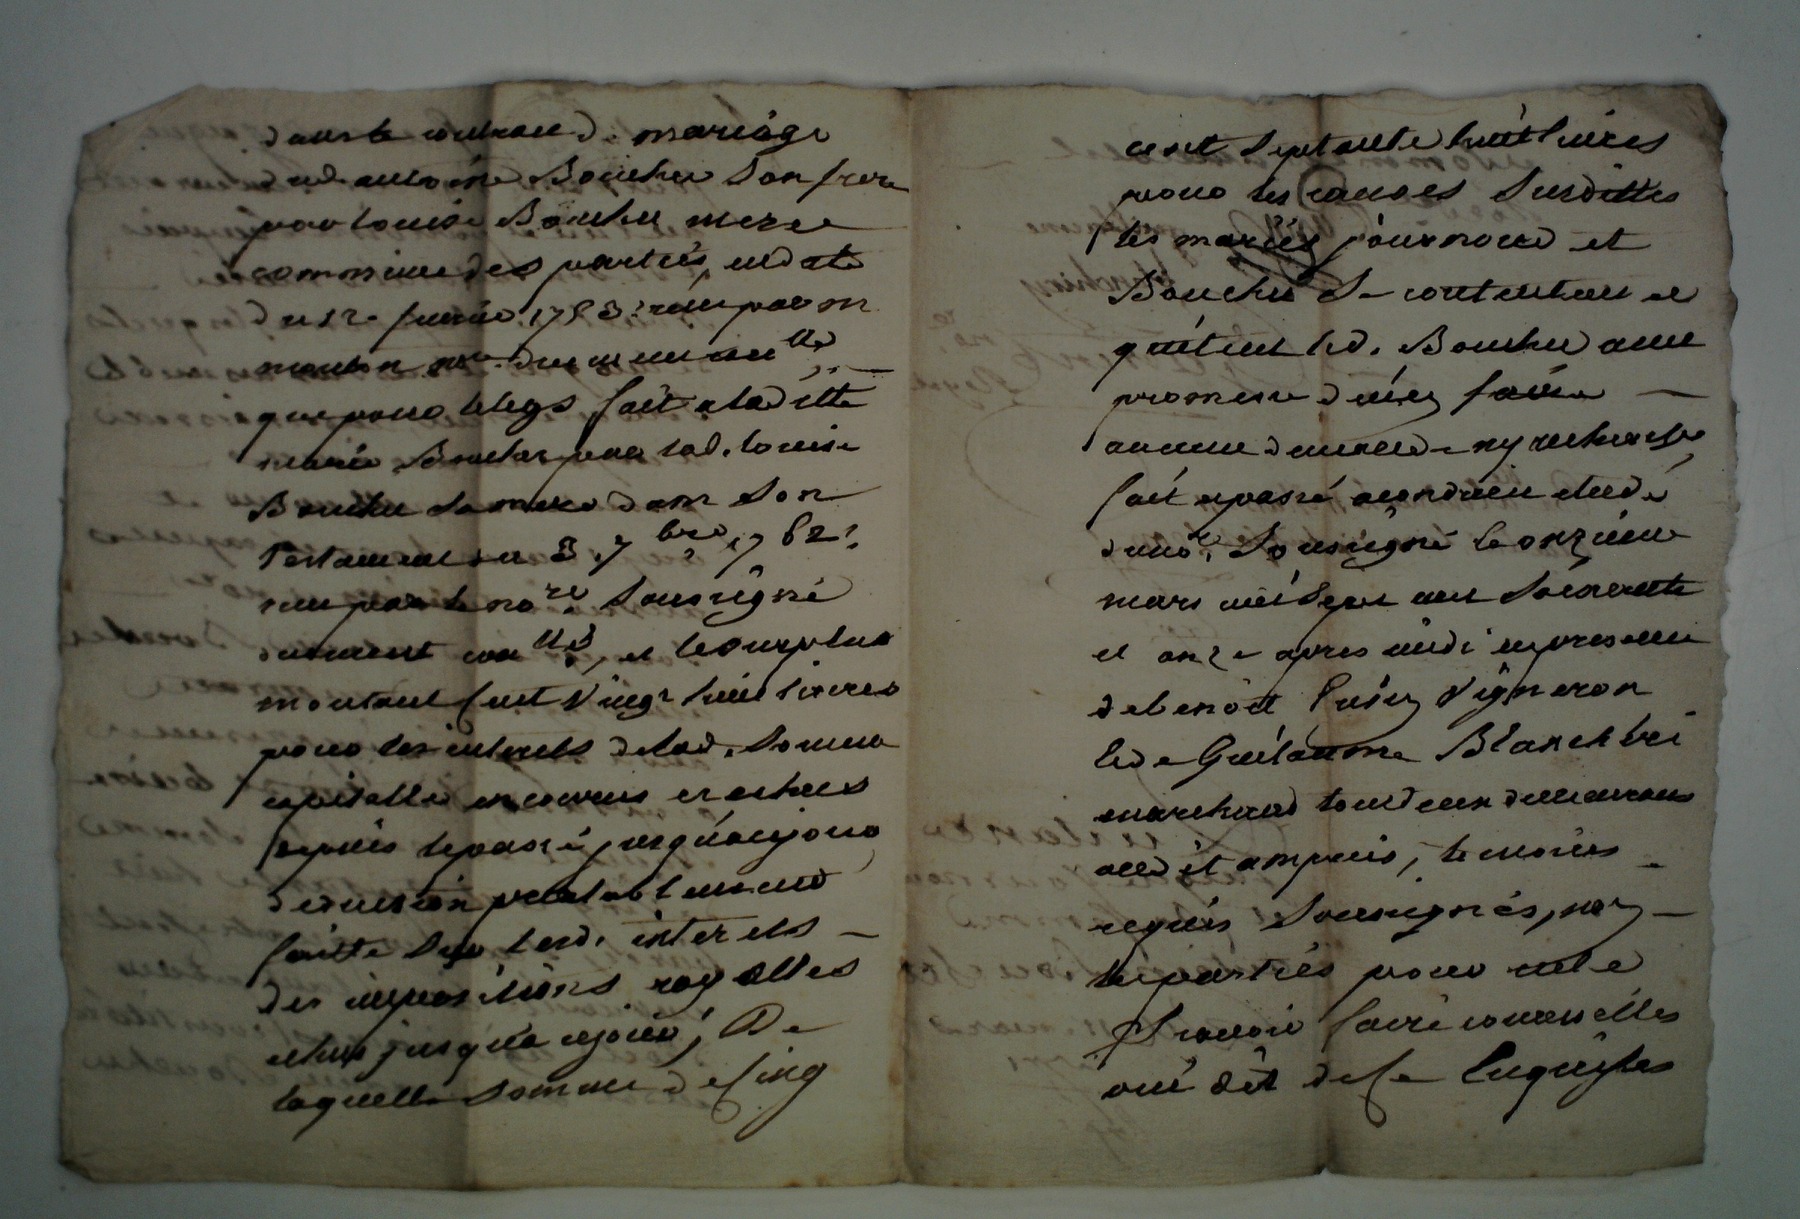 dans le contract de mariage
dud antoine Bouchu son frere
par louise Bouchu mere
commune des parties, en date
du 12e fevrier 1753: recu par m
mouton nore. duement conllé,
que pour le legs fait a laditte
marie Bouchu par lad. louise
Bouchu sa mere dans son
Testament du 3. 7bre. 1762:
recu par le nore. soussigné
duement conllé, et le surplus
montant cent vingt huit livres
pour les interets de lad. somme
capitalle encourus et echus
depuis le passé jusqu'a ce jour
deduction prealablement
faitte sur lesd. interets —
des impositions royalles
echus jusqu'a ce jour; De
laquelle somme de Cinq
cent septante huit livres
pour les causes susdittes
les mariés journoud et
Bouchu se contentent et
quittent led. Bouchu avec
promesse d'en faire —
aucune demande ny recherche,
fait et passé a condrieu etude
du nore. soussigné le onzieme
mars mil sept cent soixante
et onze apres midi en presence
de benoit vigneron
et de Guilaume Blanchet
marchand tous deux demeurans
aud it ampuis, temoins —
requis soussignés, non —
les parties pour ne le
scavoir faire comme elles
ont dit de ce Enquises